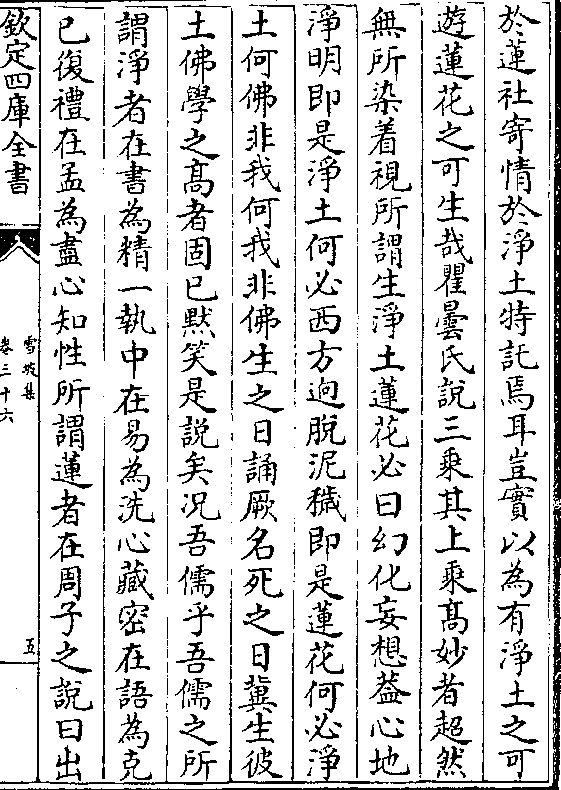 於蓮社寄情於淨土特託焉耳豈實以為有淨土之可
遊蓮花之可生哉瞿曇氏說三乗其上乗髙妙者超然
無所染着視所謂生淨土蓮花必曰幻化妄想葢心地
淨明即是淨土何必西方逈脫泥穢即是蓮花何必淨
土何佛非我何我非佛生之日誦厥名死之日冀生彼
土佛學之髙者固已黙笑是說矣况吾儒乎吾儒之所
謂淨者在書為精一執中在易為洗心藏密在語為克
已復禮在孟為盡心知性所謂蓮者在周子之說曰出
欽定四庫全書
雪坡集
卷三十六
五